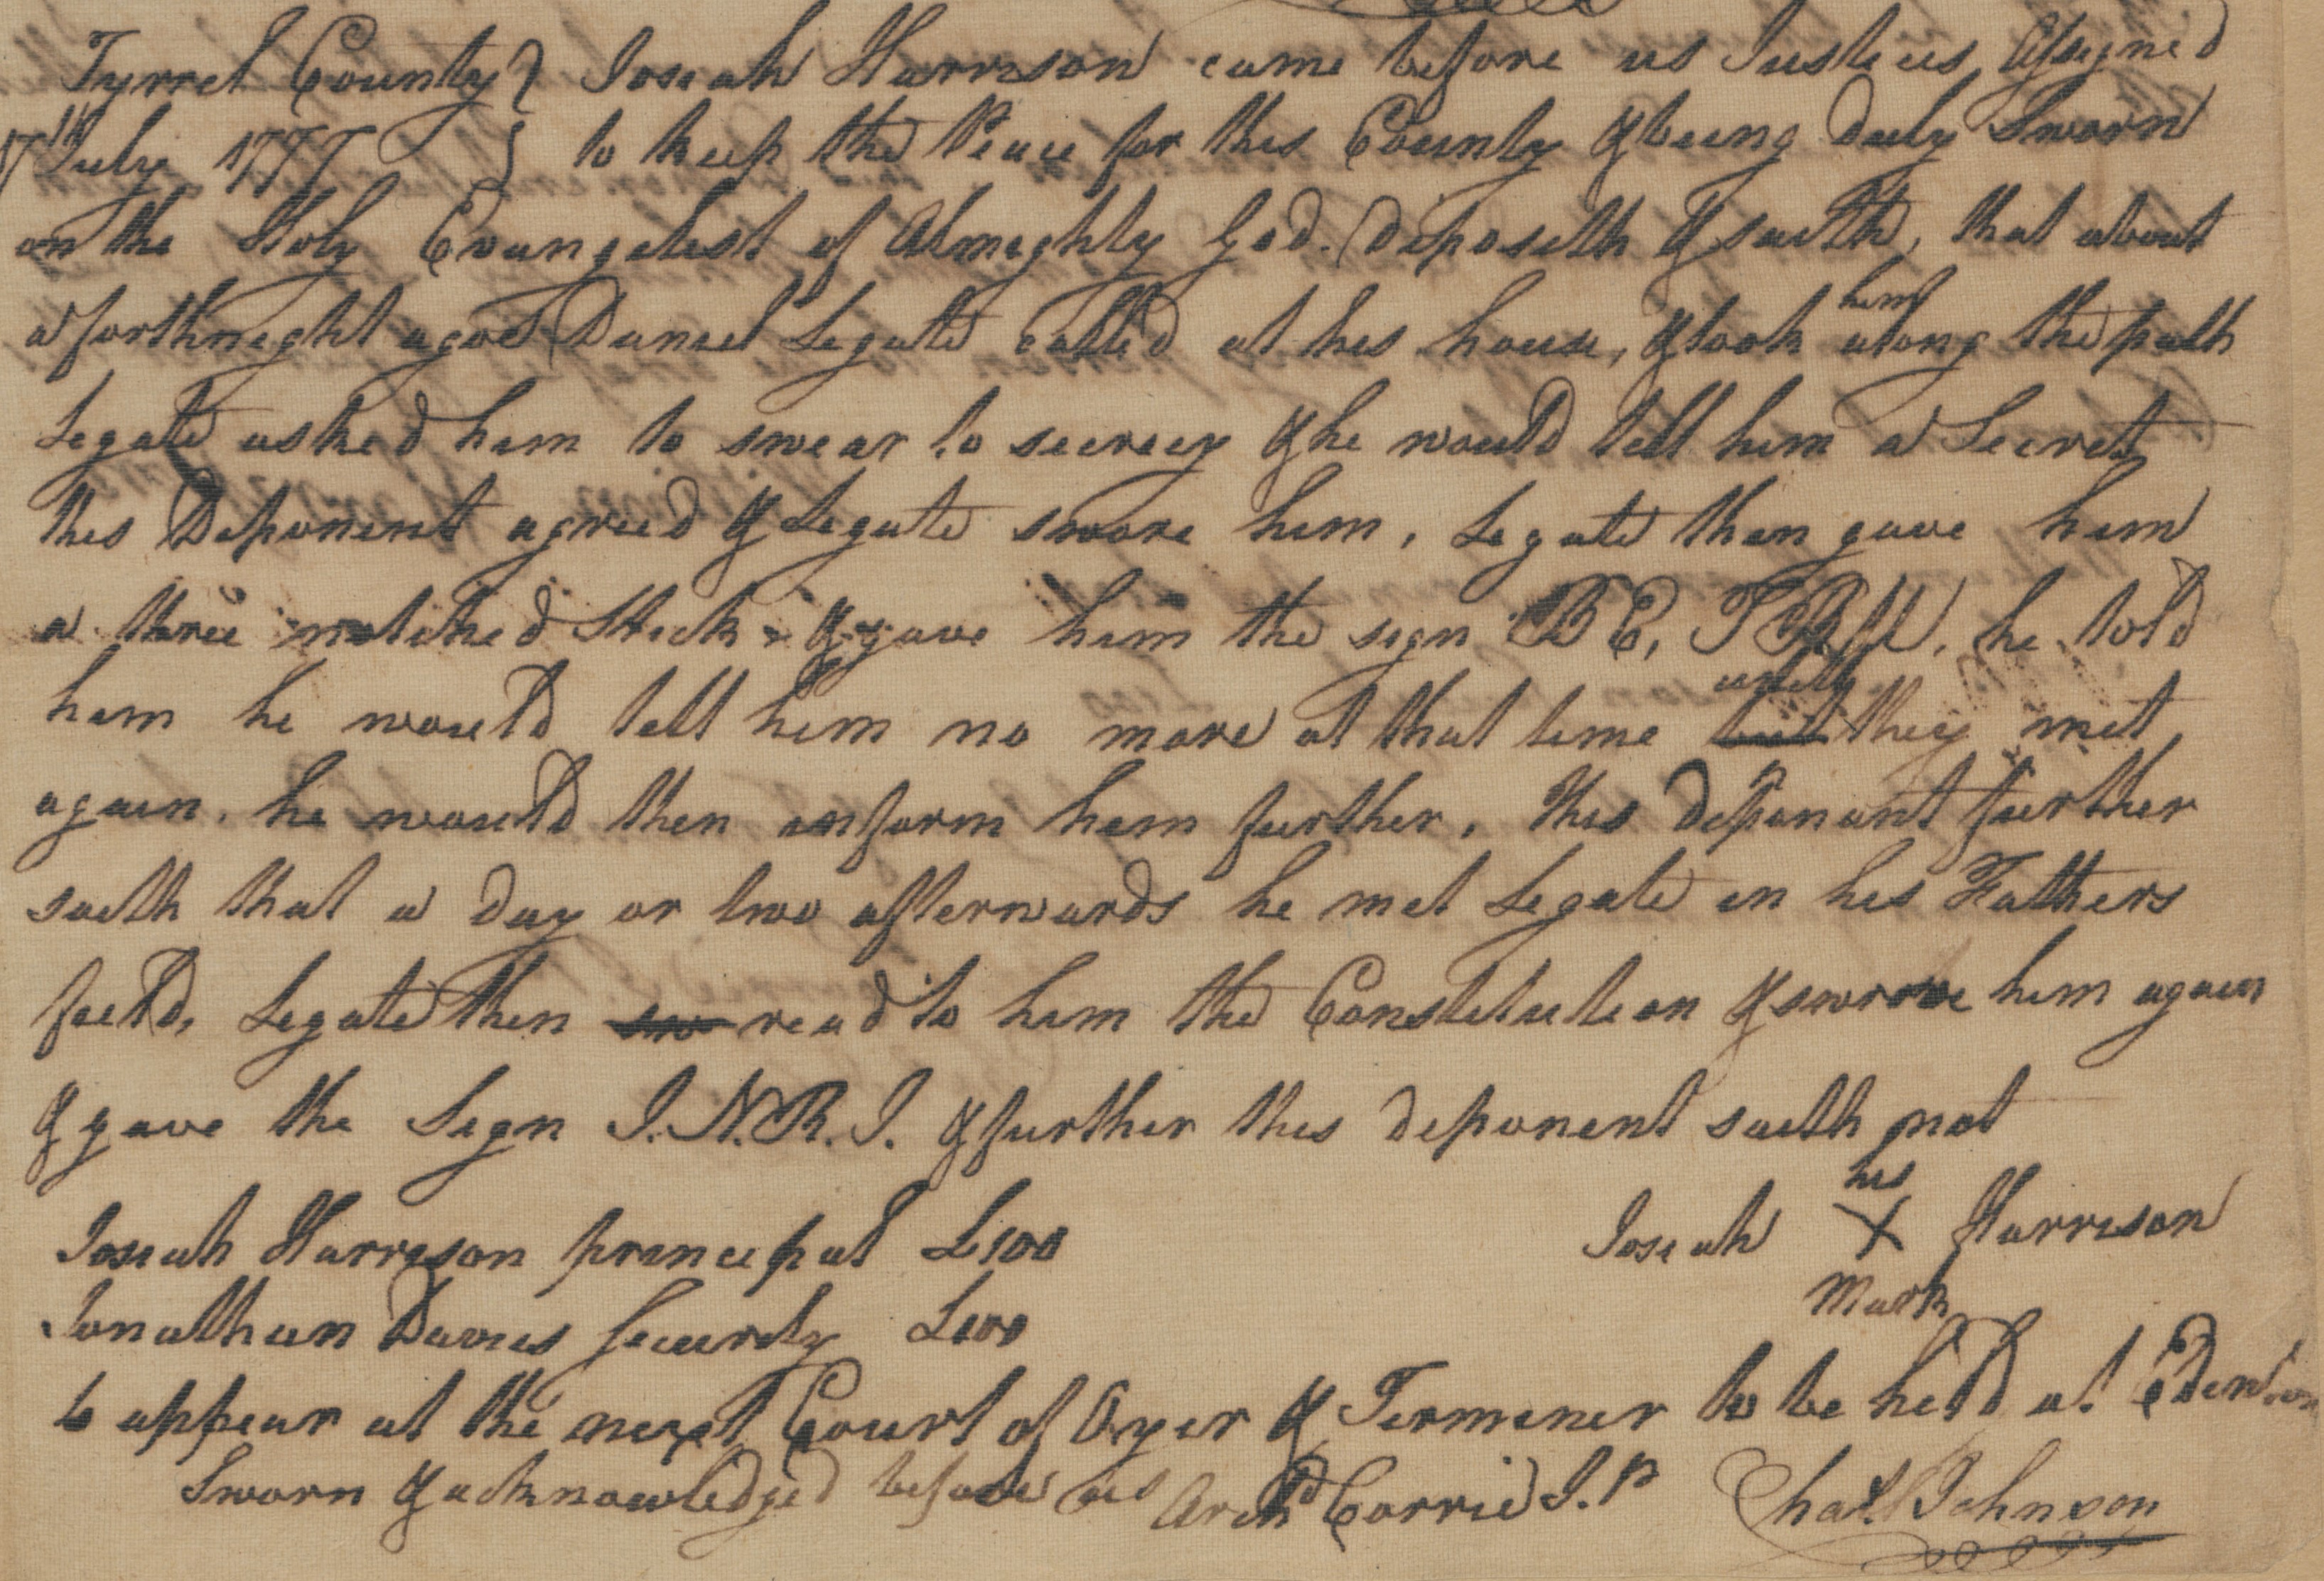 Tyrrel County } Josiah Harrison came before us Justices Assigned
17th July 1777 } to keep the Peace for this County & being duly Sworn
on the Holy Evangelist of Almighty God. Deposeth & saith, that about
a forthnight agoe Daniel Legate called at his house, & took him along the path
Legate asked him to swear to secrecy & he would tell him a Secret
this Deponent agreed & Legate swore him, Legate then gave him
a three notched Stick & gave him the sign B E, T R U, he told
him he would tell him no more at that time but untill they met
again. he would then inform him further, this deponant further
saith that a day or two afterwards he met Legate in his Fathers
field, Legate then sw read to him the Constitution & swrore him again
& gave the Sign I.N.R.I. & further this deponent saith not
Josiah his X mark Harrison
Josiah Harrison principal £100
Jonathan Davies Security £100
to appear at the next Court of Oyer & Terminer to be held at Edenton
Sworn & acknowledged before us Archd Corrie J.P Chas. Johnson